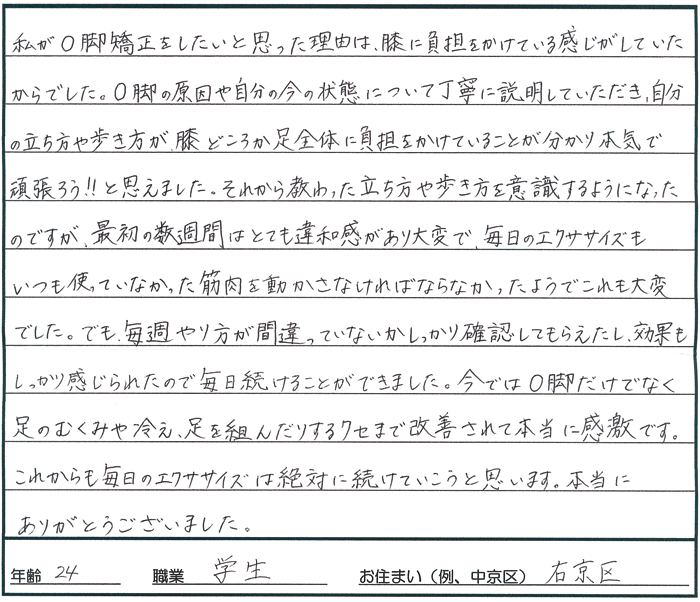 私がO脚矯正をしたいと思った理由は、膝に負担をかけている感じがしていた
からでした。O脚の原因や自分の今の状態について丁寧に説明していただき、自分
の立ち方や歩き方が、膝どころか足全体に負担をかけていることが分かり本気で
頑張ろう!!と思えました。それから教わった立ち方や歩き方を意識するようになった
のですが、最初の数週間はとても違和感があり大変で、毎日のエクササイズも
いつも使っていなかった筋肉を動かさなければならなかったようでこれも大変
でした。でも、毎週やり方が間違っていないかしっかり確認してもらえたし、効果も
しっかり感じられたので毎日続けることができました。今ではO脚だけでなく
足のむくみや冷え、足を組んだりするクセまで改善されて本当に感激です。
これからも毎日のエクササイズは絶対に続けていこうと思います。本当に
ありがとうございました。
年齢 24 職業 学生 お住まい（例、中京区） 右京区